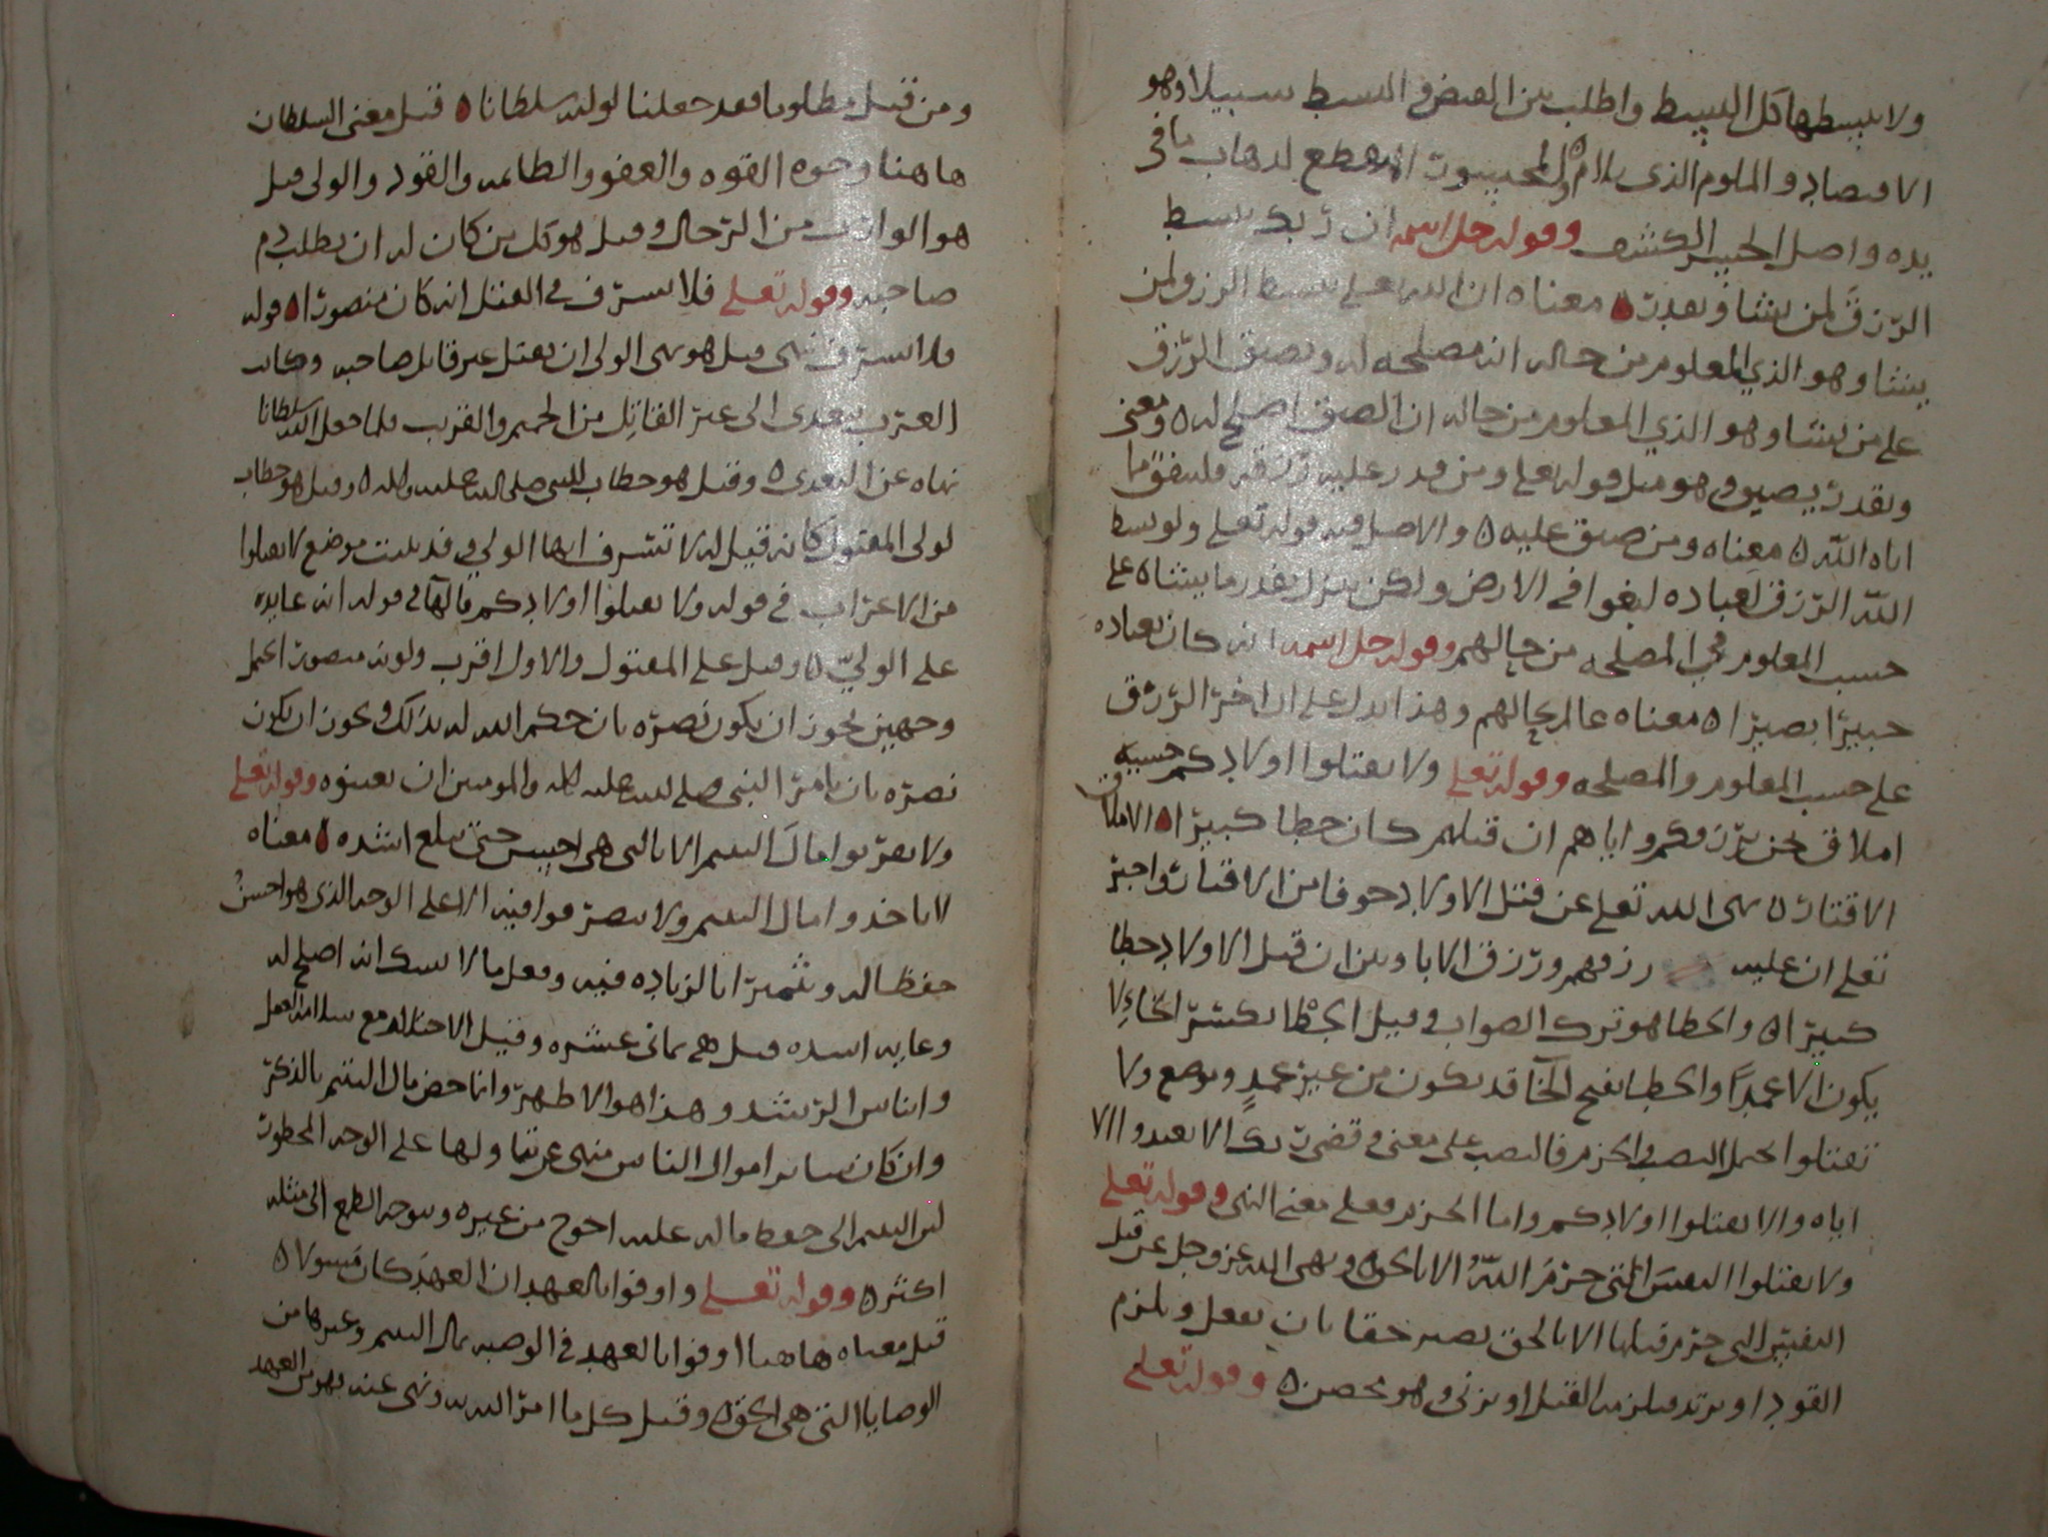 ولا تبسطها كل البسط واطلب بين القبض و البسط سبيلا وهو
الاقتصاد و الملوم الذي يلام والمحسور المنقطع لذهاب ما في
يده واصل الحسر الكشف وقوله جل اسمه ان ربك يبسط
الرزق لمن يشا ويقدر معناه ان الله تعلى يبسط الرزق لمن
يشا وهو الذي المعلوم من حاله انه مصلحه له ويضيق الرزق
على من يشا وهو الذي المعلوم من حاله ان الضيق اصلح له ومعنى
ويقدر يضيق وهو مثل قوله تعلى ومن قدر عليه رزقه فلينفق مما
اتاه الله معناه ومن ضيق عليه والاصل فيه قوله تعلى ولو بسط
الله الرزق لعباده لبغوا في الارض ولكن ينزل بقدر ما يشاه على
حسب المعلوم في المصلحه من حالهم وقوله جل اسمه انه كان بعباده
خبيرا بصيرا معناه عالم بحالهم وهذا يدل على ان اخر الرزق
على حسب المعلوم والمصلحه وقوله تعلى ولا تقتلوا اولادكم خشية
املاق نحن نرزقكم واياهم ان قتلهم كان خطا كبيرا الاملاق
الاقتار نهى الله تعلى عن قتل الاولاد خوفا من الاقتار واخبر
تعلى ان عليه رزقهم ورزق الابا وبين ان قتل الاولاد خطا
كبيرا والخطا هو ترك الصواب وقيل الخطا بكسر الخاء لا
يكون الا عمدا والخطا بفتح الخا قد يكون من غير عمد وموضع ولا
تقتلوا يحتمل النصب والجزم فالنصب على معنى وقضى ربك الا تعبدوا الا
اياه والا تقتلوا اولادكم واما الجزم فعلى معنى النهي وقوله تعلى
ولا تقتلوا النفس التي حرم الله الا بالحق ونهى الله عز وجل عن قتل
النفس التي حرم قتلها الا بالحق يصير حقا بان يفعل ويلزم
القود او يرتد فيلزمه القتل او يزني وهو محصن وقوله تعلى
ومن قتل مظلوما فقد جعلنا لوليه سلطانا قيل معنى السلطان
هاهنا وجوه القوه والعفو والطاعه والقود والولي قيل
هو الوارث من الرجال وقيل هو كل من كان له ان يطلب دم
صاحبه وقوله تعلى فلا يسرف في القتل انه كان منصورا قوله
فلا يسرف نهي قيل هو نهى الولي ان يقتل غير قاتل صاحبه وكانت
العرب تتعدى الى غير القاتل من الحميم والقريب فلما جعل الله سلطانا
نهاه عن التعدي وقيل هو خطاب للنبي صلى الله عليه واله وقيل هو خطاب
لولي المقتول كانه قيل له لا تسرف ايها الولي وقد بينت موضع لا تقتلوا
من الاعراب في قوله ولا تقتلوا اولادكم فالها في قوله انه عايده
على الولي وقيل على المقتول والاول اقرب وكونه منصورا يحتمل
وجهين يجوز ان يكون نصره بان حكم الله له بذلك ويجوز ان يكون
نصره بان يامر النبي صلى الله عليه واله والمومنين ان يعينوه وقوله تعلى
ولا تقربوا مال اليتيم الا بالتي هي احسن حتى يبلغ اشده معناه
لا تاخذوا مال اليتيم ولا تتصرفوا فيه الا على الوجه الذي هو احسن
حفظا له وتثميرا بالزياده فيه وفعل ما لا يشك انه اصلح له
وغايه اشده قيل هي ثماني عشره وقيل الاحتلام مع سلامه العقل
وايناس الرشد وهذا هو الاظهر وانما خص مال اليتيم بالذكر
وان كان ساير اموال الناس منهي عن تناولها على الوجه المحظور
لان اليتيم الى حفظ ماله عليه احوج من غيره وتوجه الطمع الى مثله
اكثر وقوله تعلى واوفوا بالعهد ان العهد كان مسولا
قيل معناه هاهنا اوفوا بالعهد في الوصيه بمال اليتيم وغيرها من
الوصايا التي هي الحق وقيل كل ما امر الله به ونهى عنه فهو من العهد